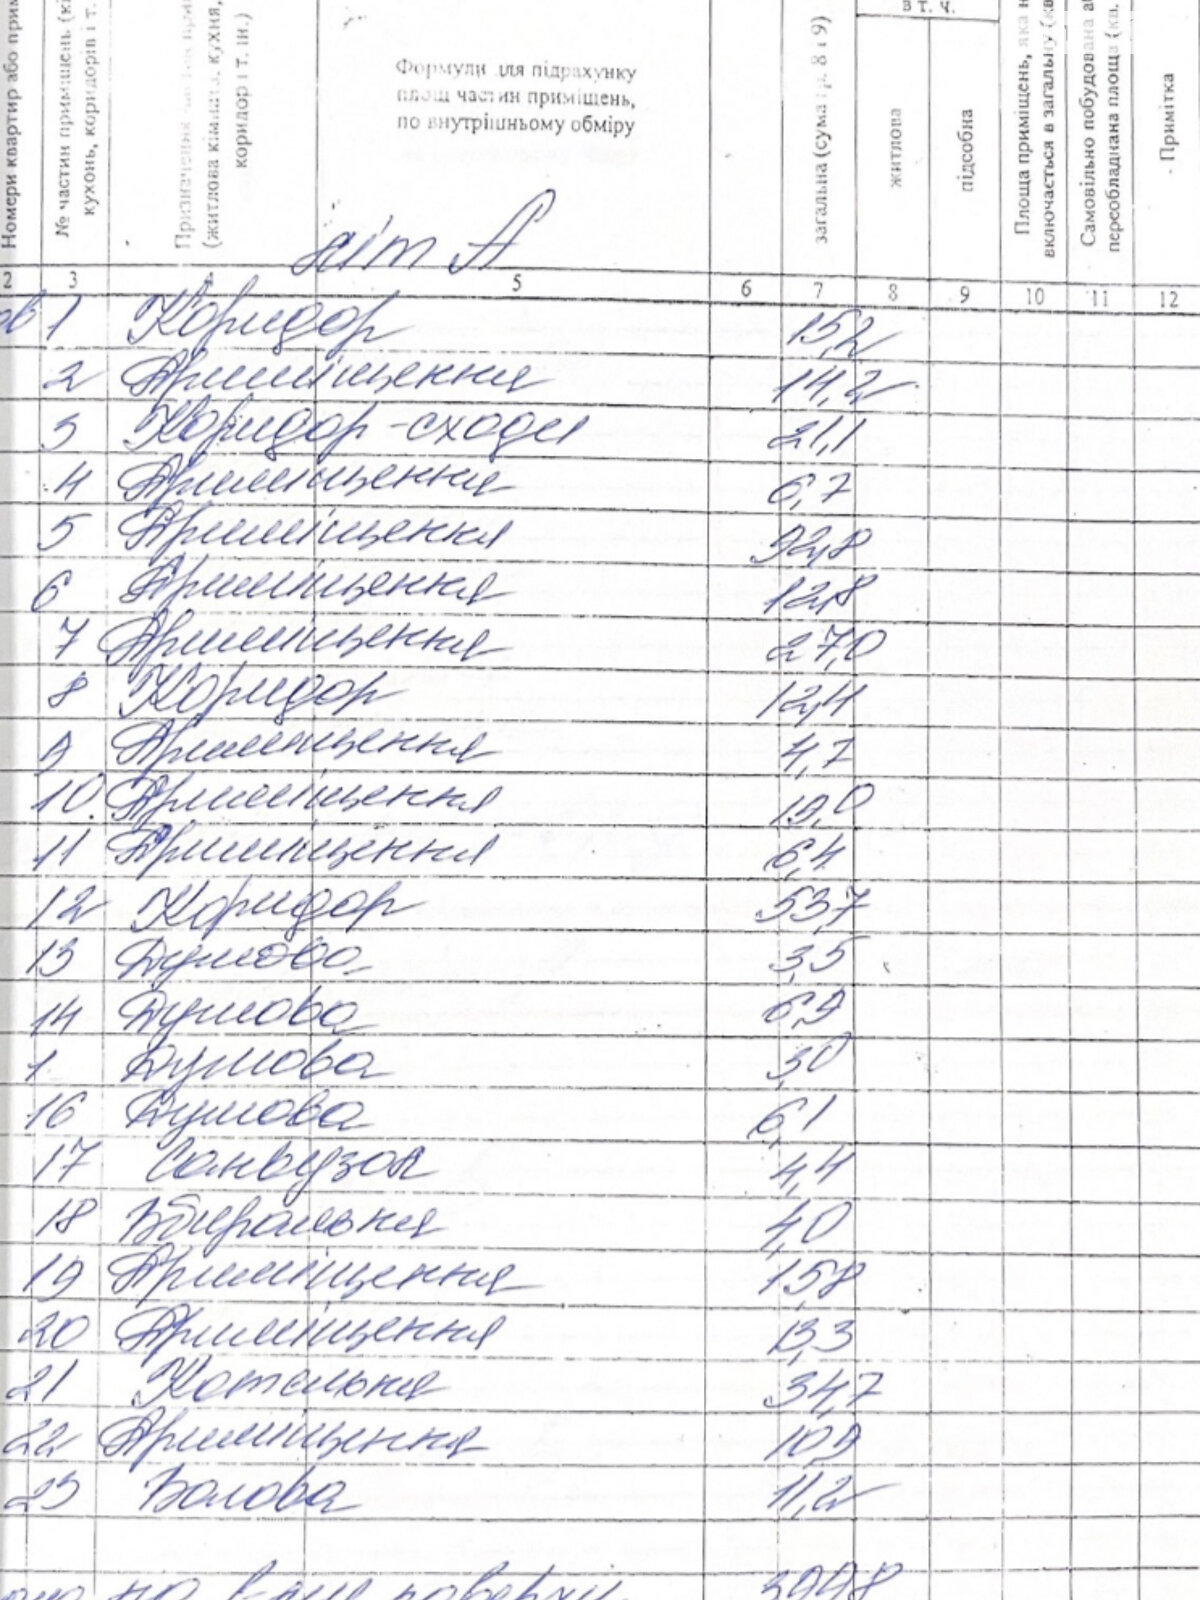 Номери квартир або прим
№ частин приміщень (к
кухонь, коридорів і т.
Призначення
(житлова кімната, кухня,
коридор і т. ін.)
Формули для підрахунку
площ частин приміщень,
по внутрішньому обміру
загальна (сума гр. 8 і 9)
в т. ч.
житлова
підсобна
Площа приміщень, яка н
включається в загальну (кв
Самовільно побудована аб
переобладнана площа (кв.
Примітка
літ А
2 3 4 5 6 7 8 9 10 11 12
1 Коридор 15,2
2 Приміщення 14,2
3 Коридор-сходи 21,1
4 Приміщення 6,7
5 Приміщення 92,8
6 Приміщення 12,8
7 Приміщення 27,0
8 Коридор 12,4
9 Приміщення 4,7
10. Приміщення 19,0
11 Приміщення 6,4
12 Коридор 53,7
13 Душова 3,5
14 Душова 6,9
1 Душова 3,0
16 Душова 6,1
17 Санвузол 4,4
18 Вбиральня 4,0
19 Приміщення 15,8
20 Приміщення 13,3
21 Котельня 34,7
22 Приміщення 10,9
23 Болова 11,2
поверху